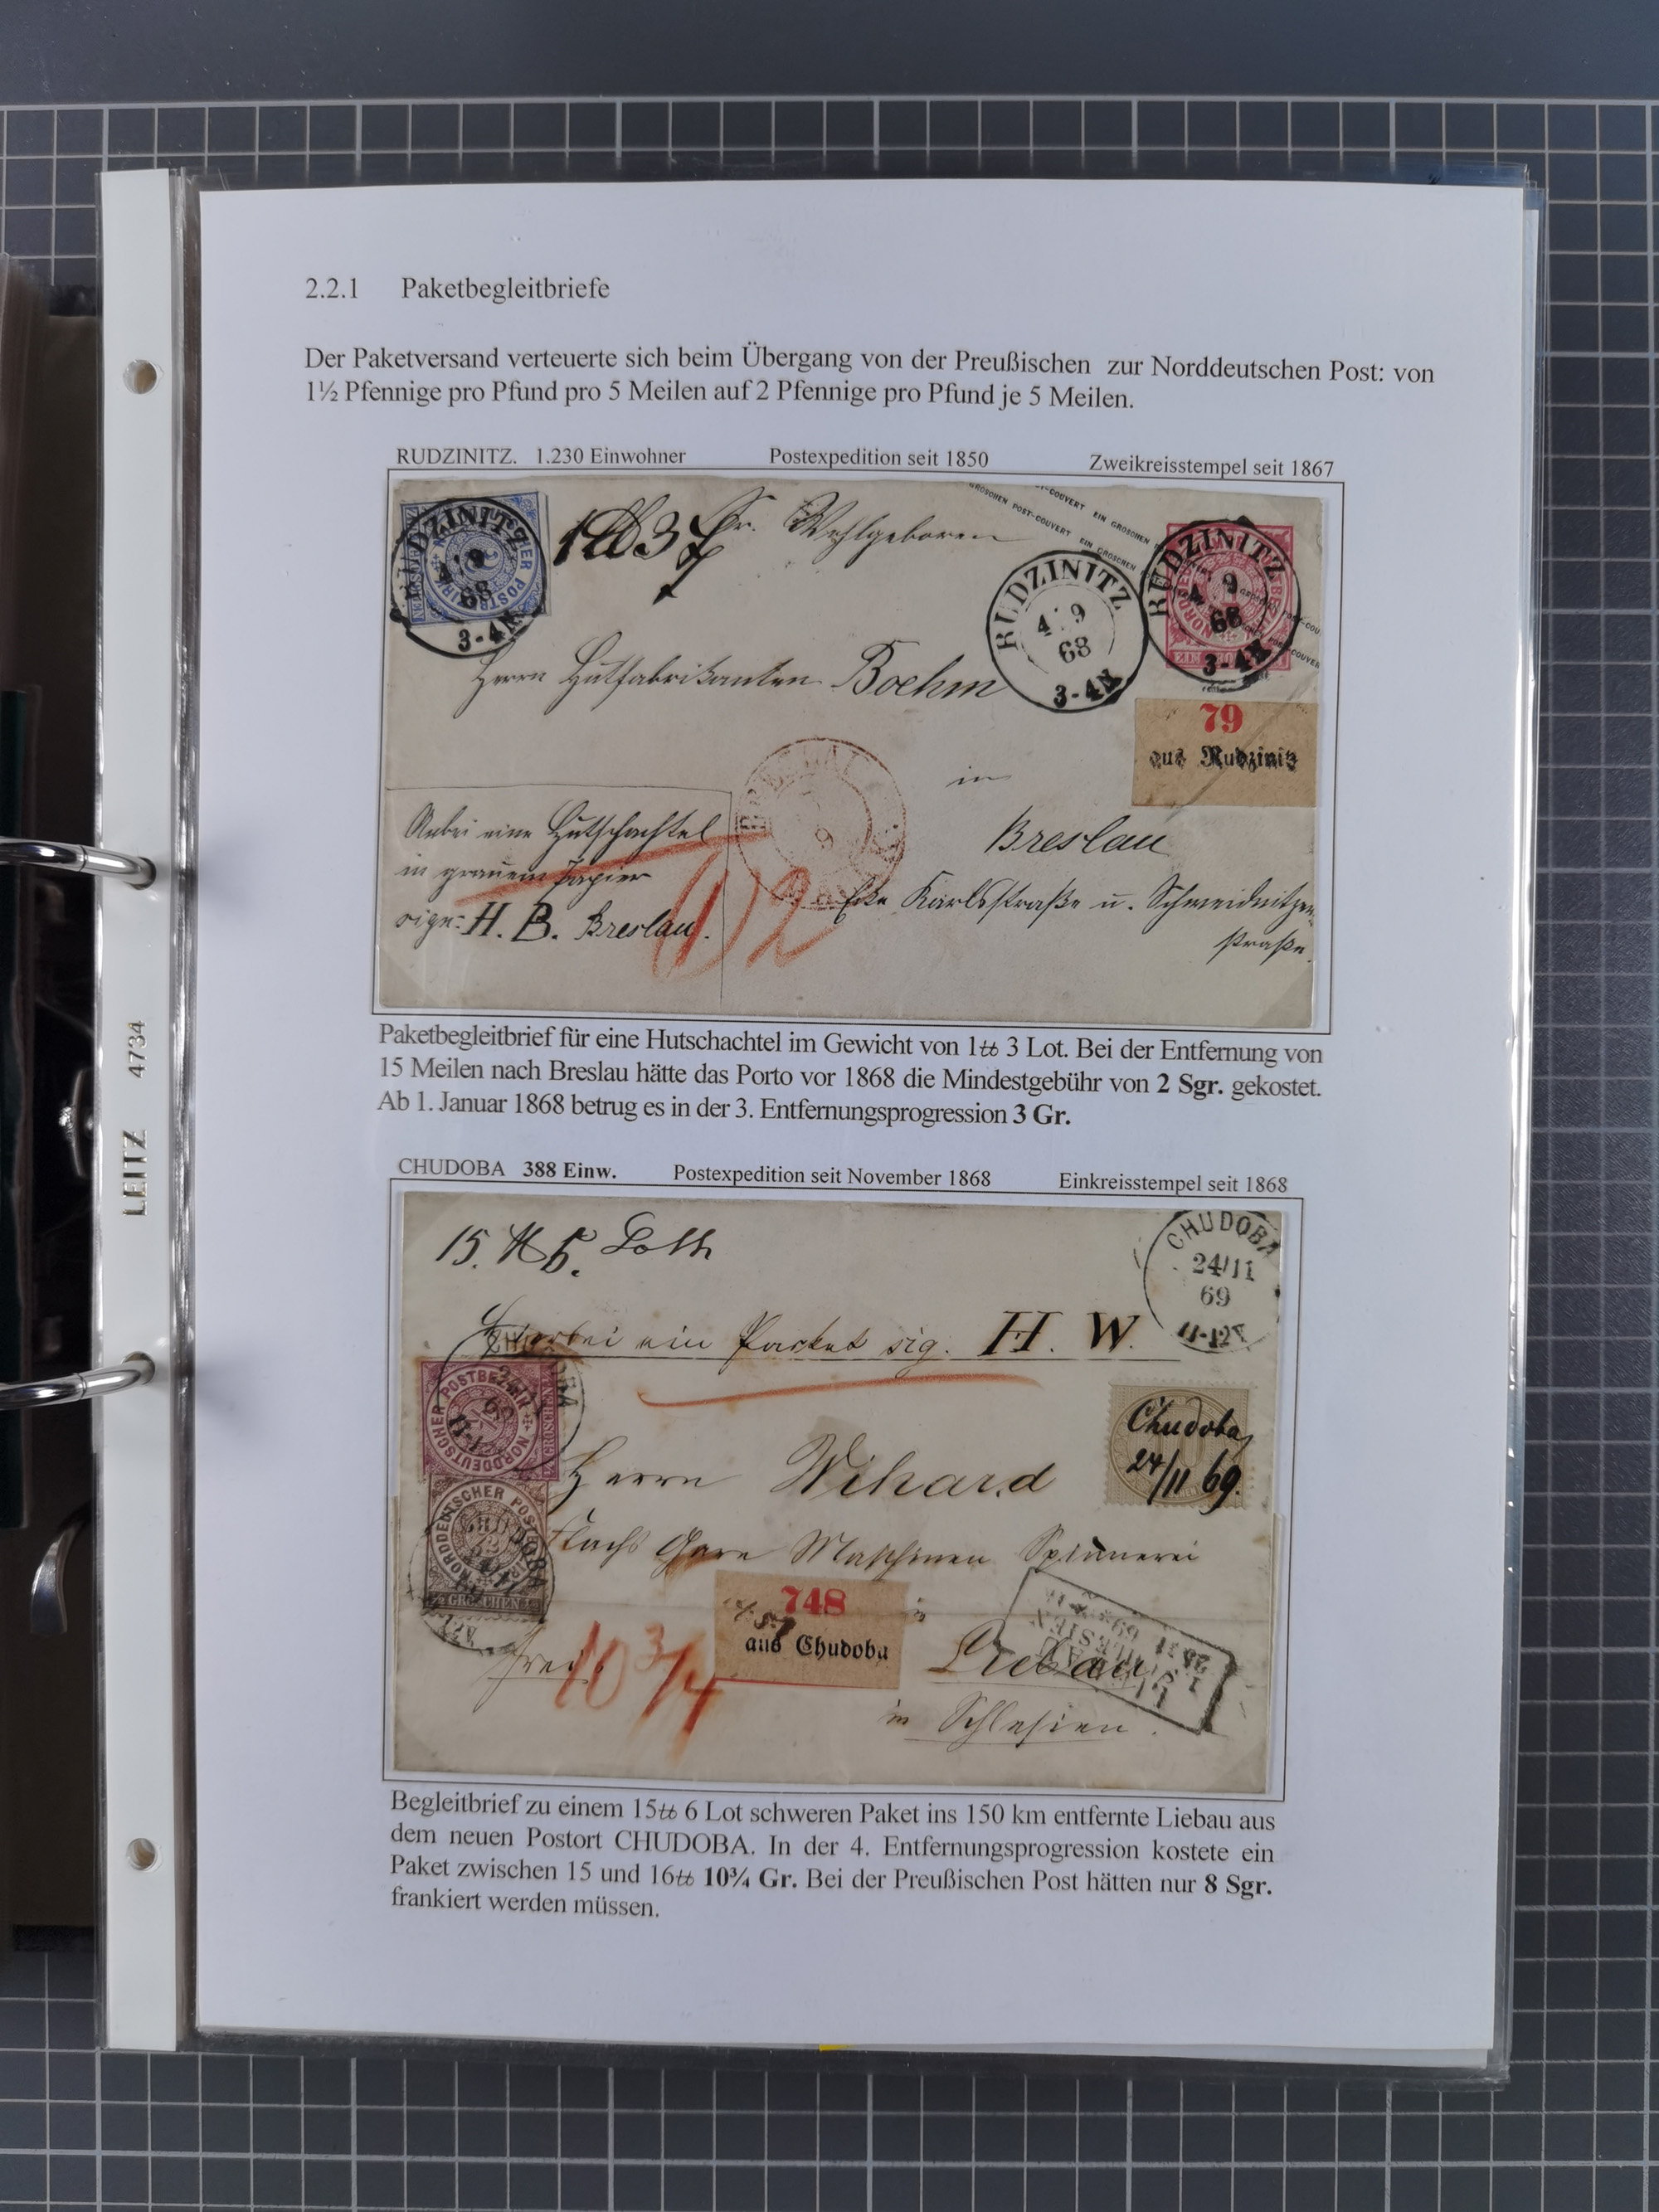 2.2.1 Paketbegleitbriefe
Der Paketversand verteuerte sich beim Übergang von der Preußischen zur Norddeutschen Post: von
1½ Pfennige pro Pfund pro 5 Meilen auf 2 Pfennige pro Pfund je 5 Meilen.
RUDZINITZ. 1.230 Einwohner Postexpedition seit 1850 Zweikreisstempel seit 1867
EIN GROSCHEN POST-COUVERT
RUDZINITZ
4 9
68
3-4N
Sr. Wohlgeboren
RUDZINITZ
4 9
68
3-4N
RUDZINITZ
4 9
68
3-4N
Herrn Hutfabrikanten Boehm
79
aus Rudzinitz
in
Breslau
Ecke Karlsstraße u. Schweidnitzer
straße.
Anbei eine Hutschachtel
in grauem Papier
sign: H. B. Breslau.
2
Paketbegleitbrief für eine Hutschachtel im Gewicht von 1℔ 3 Lot. Bei der Entfernung von
15 Meilen nach Breslau hätte das Porto vor 1868 die Mindestgebühr von 2 Sgr. gekostet.
Ab 1. Januar 1868 betrug es in der 3. Entfernungsprogression 3 Gr.
CHUDOBA 388 Einw. Postexpedition seit November 1868 Einkreisstempel seit 1868
15 ℔ 6. Loth
CHUDOBA
24/11
69
11-12V
Hierbei ein Packet sig. H. W.
NORDDEUTSCHER POSTBEZIRK
Chudoba
24/11 69.
Herrn Wihard
Flachs Garn Maschinen Spinnerei
748
aus Chudoba
in
Liebau
frei
10 3/4
in Schlesien.
Begleitbrief zu einem 15℔ 6 Lot schweren Paket ins 150 km entfernte Liebau aus
dem neuen Postort CHUDOBA. In der 4. Entfernungsprogression kostete ein
Paket zwischen 15 und 16℔ 10¾ Gr. Bei der Preußischen Post hätten nur 8 Sgr.
frankiert werden müssen.
LEITZ 4734